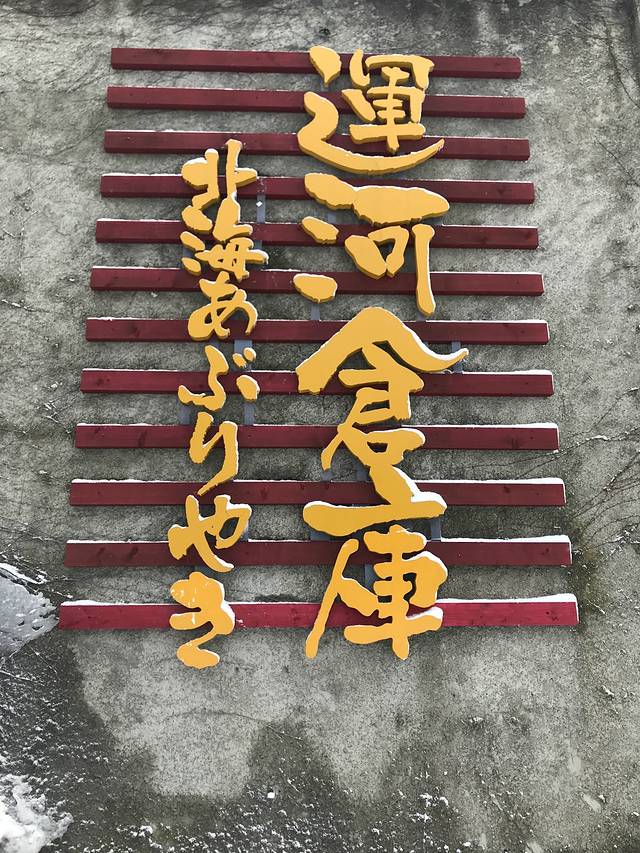 運河倉庫
北海あぶりやき